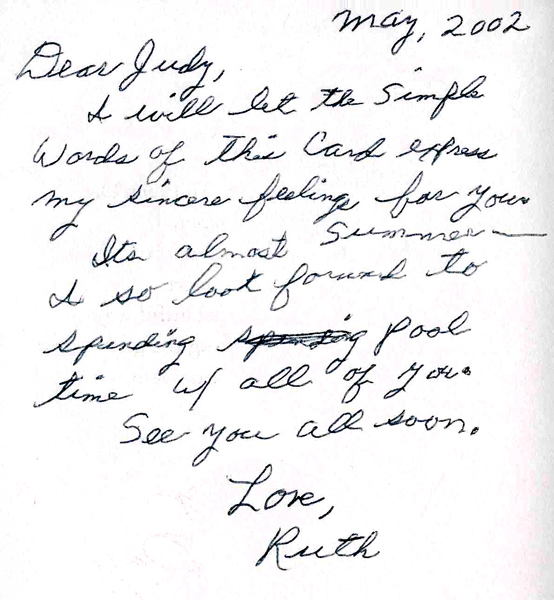 May, 2002
Dear Judy,
I will let the Simple
Words of this Card express
my sincere feelings for you.
Its almost Summer—
I so look forward to
spending spending pool
time w/ all of you.
See you all soon.
Love,
Ruth